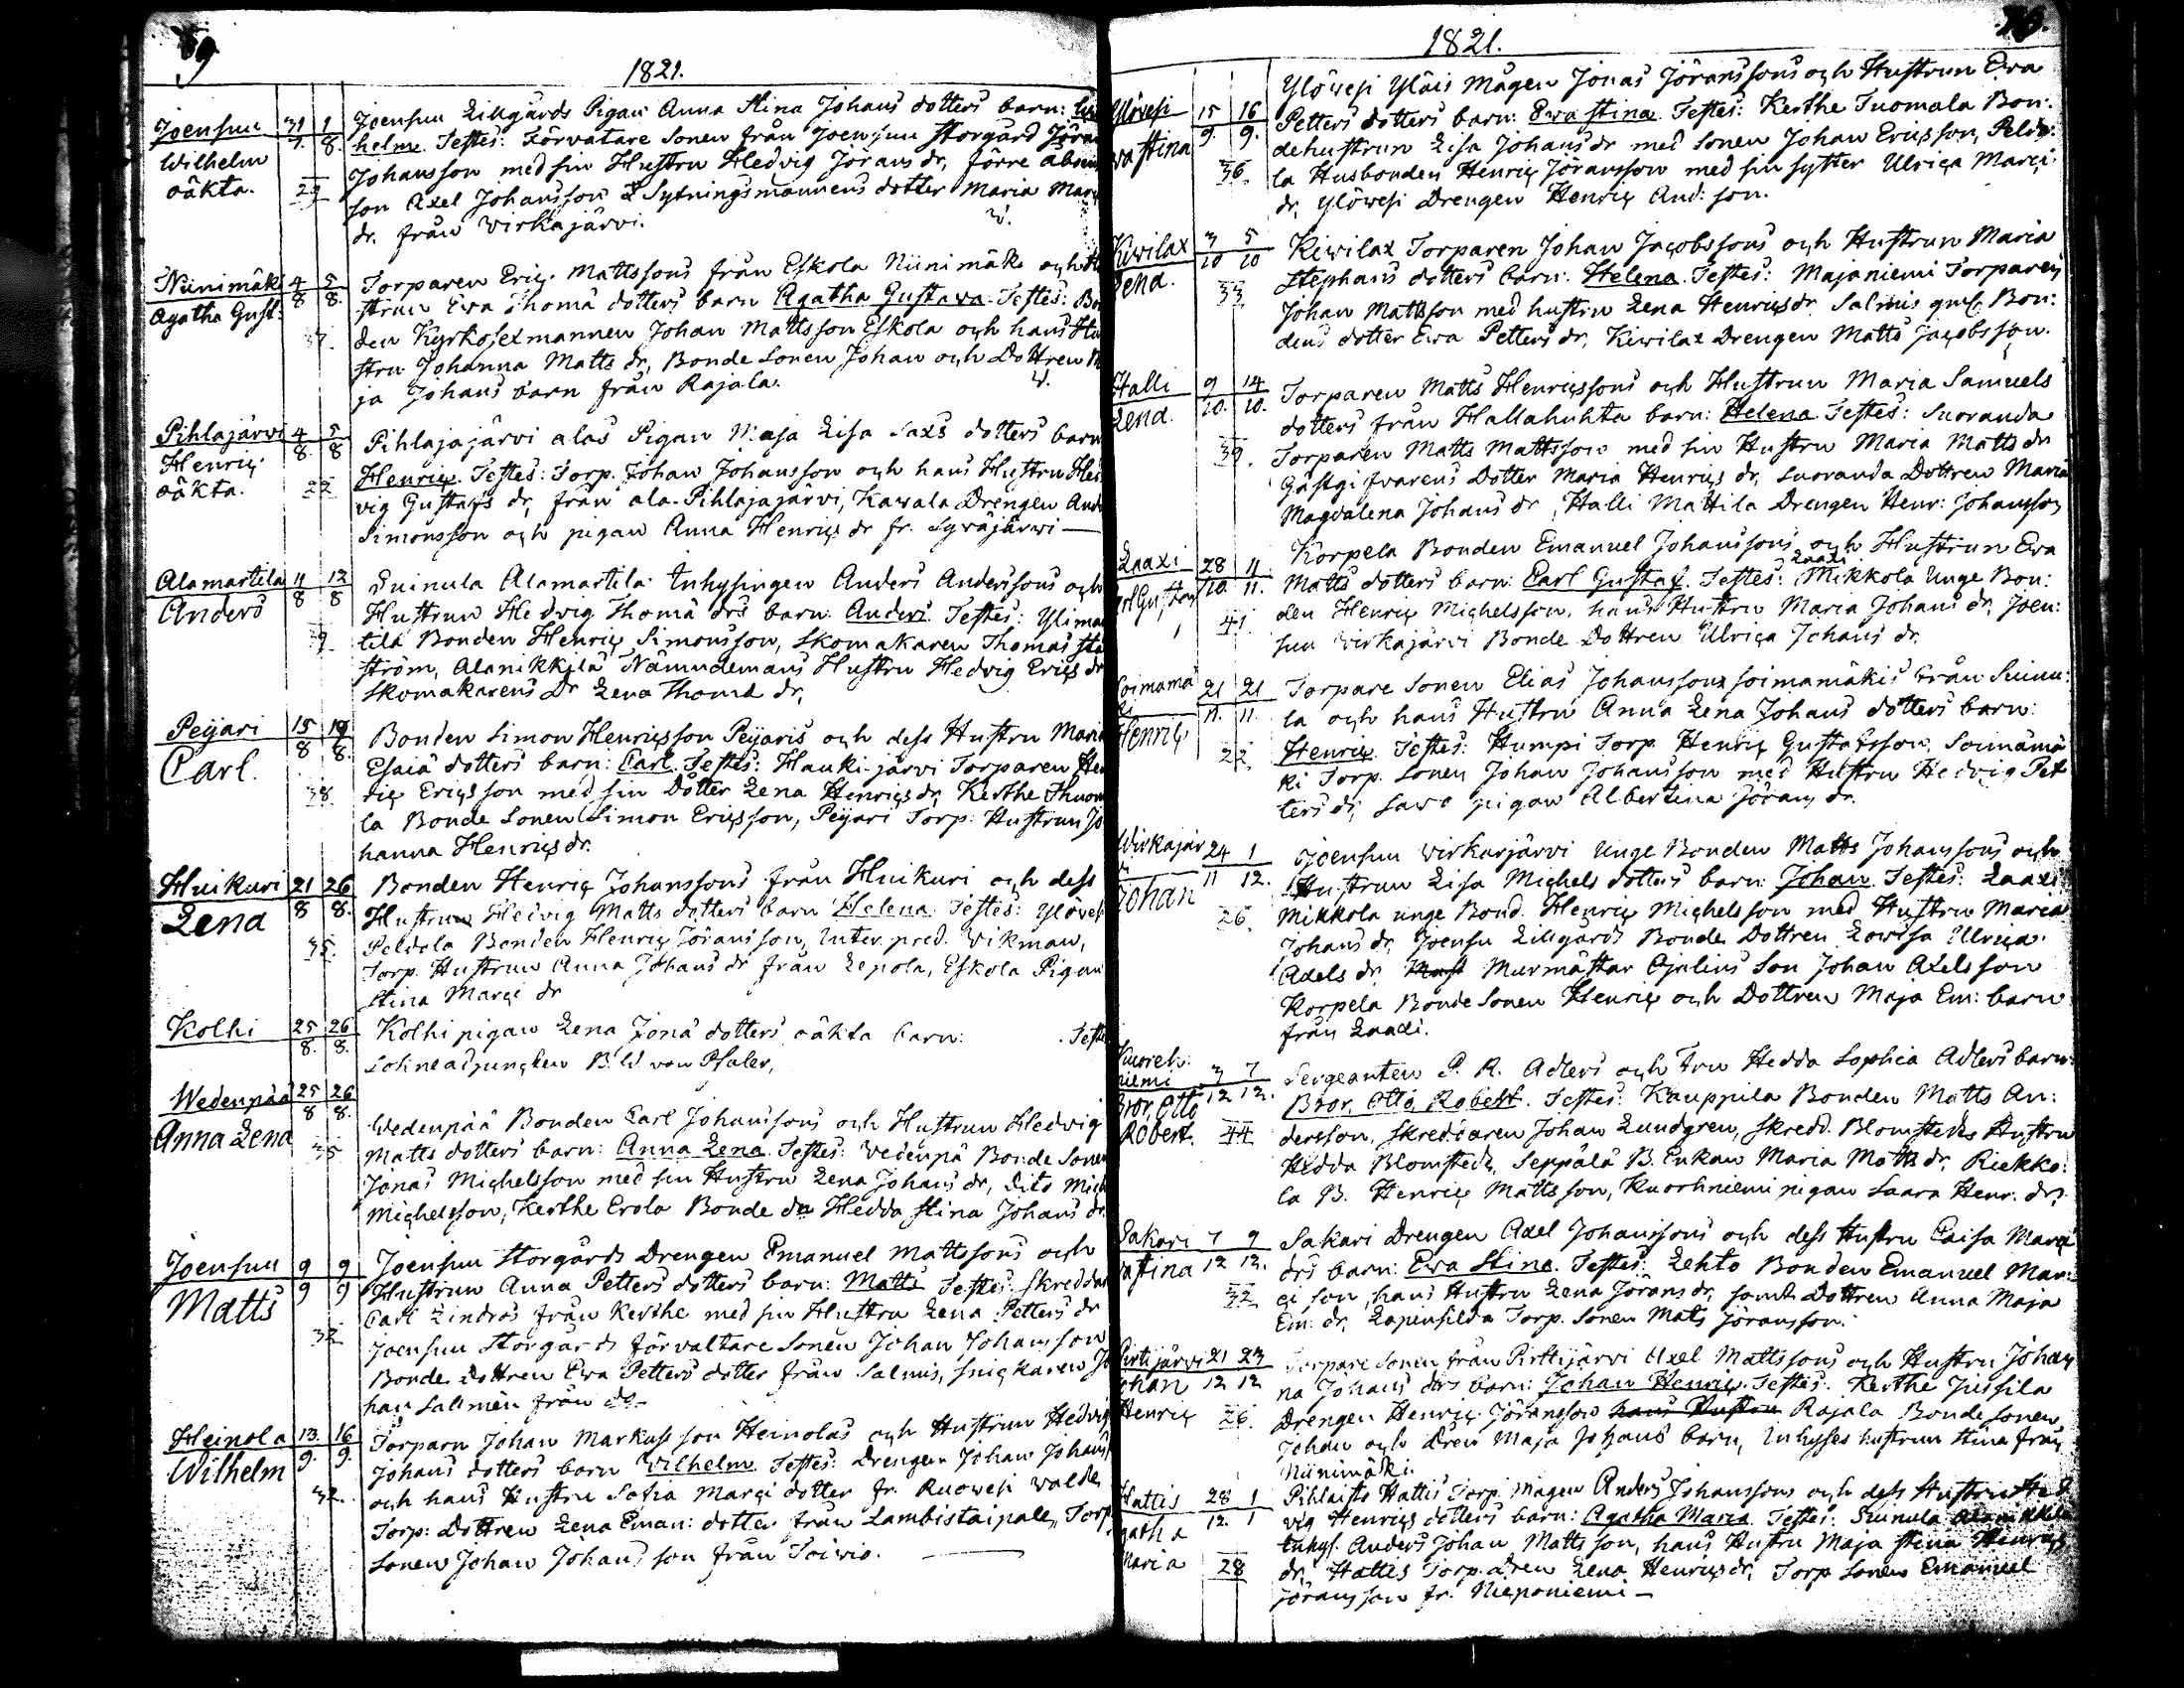 1821.
Joensuu 31 1 Joensuu Lillgårds Pigan Anna Stina Johans dotters barn:
Wilhelm 7. 8. helm Testes: Förvatare Sonen från Joensuu Storgård
oäkta. 29 Johansson med sin Hustru Hedvig Jörans dr,
son Axel Johansson Sytningsmannens dotter Maria
dr. från Wirkajärvi.
Niinimäk 4 5 Torparen Eric Mattssons från Eskola Niinimäk och
Agatha Gust: 8 8. strun Ewa Thomä dotters barn Agatha Gustava. Testes:
37. den Kyrkosexmannen Johan Mattsson Eskola och hans
stru Johanna Matts dr, Bonde Sonen Johan och Dottren
ja Johans barn från Rajala.
Pihlajärvi 4 5 Pihlajajärvi alas Pigan Maja Lisa Saxs dotters barn
Henric 8. 8 Henric. Testes: Torp. Johan Johansson och hans Hustru
oäkta. 22 vig Gustafs dr, från ala-Pihlajajärvi, Kawala Drengen
Simonsson och pigan Anna Henrics dr fr. Syväjärwi —
Alamartila 11 12 Suinula Alamartila Inhysingen Anders Anderssons och
Anders 8 8 Hustrun Hedvig Thomä drs barn: Anders. Testes:
39 tila Bonden Henric Simonsson, Skomakaren Thomas
ström, Alanikkilä Nämndemans Hustru Hedvig Erics dr
Skomakarens Dr Lena Thomä dr,
Peijari 15 19 Bonden Simon Henricsson Peijaris och dess Hustru Maria
Carl. 8 8. Esaiä dotters barn: Carl. Testes: Hauki-järvi Torparen
38. ric Ericsson med sin Dotter Lena Henrics dr, Kerthe
la Bonde Sonen Simon Ericsson, Peijari Torp: Hustrun
hanna Henrics dr.
Huikuri 21 26 Bonden Henric Johanssons från Huikuri och dess
Lena 8 8. Hustrun Hedvig Matts dotters barn Helena. Testes:
35. Peldola Bonden Henric Jöransson, Inter. pred. Wikman,
Torp. Hustrun Anna Johans dr från Lepola, Eskola Pigan
Stina Marci dr
Kolhi 25 26 Kolhi pigan Lena Jonä dotters oäkta barn:
8. 8. von Pfaler,
Wedenpää 25 26
8 8. Wedenpää Bonden Carl Johanssons och Hustrun Hedvig
Anna Lena 35 Matts dotters barn: Anna Lena. Testes: Vedenpä Bonde Sonen
Jonas Michelsson med sin Hustru Lena Johans dr, dito
Michelsson, Kerthe Erola Bonde dr Hedda Stina Johans dr.
Joensuu 9 9 Joensuu Storgårds Drengen Emanuel Mattssons och
Matts 9 9 Hustrun Anna Petters dotters barn: Matts. Testes:
32 Carl Lindros från Kerthe med sin Hustru Lena Petters dr
Joensuu Storgårds förvaltare Sonen Johan Johansson
Bonde Dottren Ewa Petters dotter från Salmis, Snickaren
han Salmén från do
Heinola 13. 16 Torparn Johan Markusson Heinolas och Hustrun Hedvig
Wilhelm 9. 9. Johans dotters barn Wilhelm. Testes: Drengen Johan
32. och hans Hustru Sofia Marci dotter fr. Ruovesi Walde
Torp: Dottren Lena Eman: dotter från Lambistaipale, Torp.
Sonen Johan Johansson från Toiwio.
1821.
Ylöwesi Yläis Mågen Jonas Jöranssons och Hustrun Ewa
Ylöwesi 15 16 Petters dotters barn: Ewa Stina. Testes: Kerthe Tuomala Bon:
9. 9. dehustrun Lisa Johans dr med Sonen Johan Ericsson, Peldo:
36 la Husbonden Henric Jöransson med sin syster Ulrica Marci
dr, Ylöwesi Drengen Henric And: son.
Kiwilax 3 5 Kiwilax Torparen Johan Jacobssons och Hustrun Maria
Lena. 10 10 Stephans dotters barn: Helena. Testes: Majaniemi Torparen
33 Johan Mattsson med hustru Lena Henrics dr, Salmis Bon:
dens dotter Ewa Petters dr, Kiwilax Drengen Matts Jacobsson.
Halli 9 14 Torparen Matts Henricssons och Hustrun Maria Samuels
Lena. 10. 10. dotters från Hallahuhta barn: Helena. Testes: Suoranda
39. Torparen Matts Mattsson med sin Hustru Maria Matts dr
Gästgifvarens Dotter Maria Henrics dr, Suoranda Dottren Maria
Magdalena Johans dr, Halli Mattila Drengen Henr: Johansson
Korpela Bonden Emanuel Johanssons och Hustrun Ewa
Laaxi 28 11 Matts dotters barn: Carl Gustaf. Testes: Laaxi Mikkola Unge Bon:
10. 11. den Henric Michelsson, hans Hustru Maria Johans dr, Joen:
41. suu Wirkajärvi Bonde Dottren Ulrica Johans dr.
21 21 Torpare Sonen Elias Johanssons Soimamäkis från Suinu:
11. 11. la och hans Hustru Anna Lena Johans dotters barn:
Henric 22 Henric. Testes: Humpi Torp. Henric Gustafsson, Soimämä
ki Torp. Sonen Johan Johansson med Hustru Hedvig Pet
ters dr, Savo pigan Albertina Jörans dr.
Wirkajär 24 1 Joensuu Virkarjärvi Unge Bonden Matts Johanssons och
vi 11 12. Hustrun Lisa Michels dotters barn: Johan. Testes: Laaxi
Johan 26. Mikkola unge Bond. Henric Michelsson med Hustru Maria
Johans dr, Joensu Lillgårds Bonde Dottren Lovisa Ulrica
Axels dr, Murmästar Ojelius Son Johan Axelsson
Korpela Bonde Sonen Henric och Dottren Maja Em: barn
från Laaxi.
3 7 Sergeanten P. R. Adlers och Fru Hedda Sophia Adlers barn:
Bror, Otto 12 12. Bror, Otto, Robert. Testes: Kauppila Bonden Matts An:
Robert. 44 dersson, Skreddaren Johan Lundgren, Skredd. Blomstedts Hustru
Hedda Blomstedt, Seppälä B. Enkan Maria Matts dr, Riekko:
la B. Henric Mattsson, Kuorehniemi pigan Saara Henr. dr,
Sakari 7 9 Sakari Drengen Axel Johanssons och dess Hustru Caisa Marci
12 12. drs barn: Ewa Stina. Testes: Lehto Bonden Emanuel Mar:
32 ci son, hans Hustru Lena Jörans dr, samt Dottren Anna Maja
Em: dr, Lapinsilda Torp. Sonen Mats Jöransson.
Pirtijärvi 21 23 Torpare Sonen från Pirttijärvi Axel Mattssons och Hustru Johan
Johan 12 12 na Johans drs barn: Johan Henric. Testes: Kerthe Jussila
Henric 26. Drengen Henric Jöransson hans Hustru Rajala Bonde Sonen
Johan och Dren Maja Johans barn, Inhyses hustrun Stina från
Niinimäki.
Hattis 28 1 Pihlaisto Hattis Torp. Mågen Anders Johanssons och dess Hustru Hed
Agatha 12. 1 vig Henrics dotters barn: Agatha Maria. Testes: Suinula
Maria 28 Inhys. Anders Johan Mattsson, hans Hustru Maja Stina Henrics
dr, Hattis Torp. Dren Lena Henrics dr, Torp Sonen Emanuel
Jöransson fr. Nieponiemi —